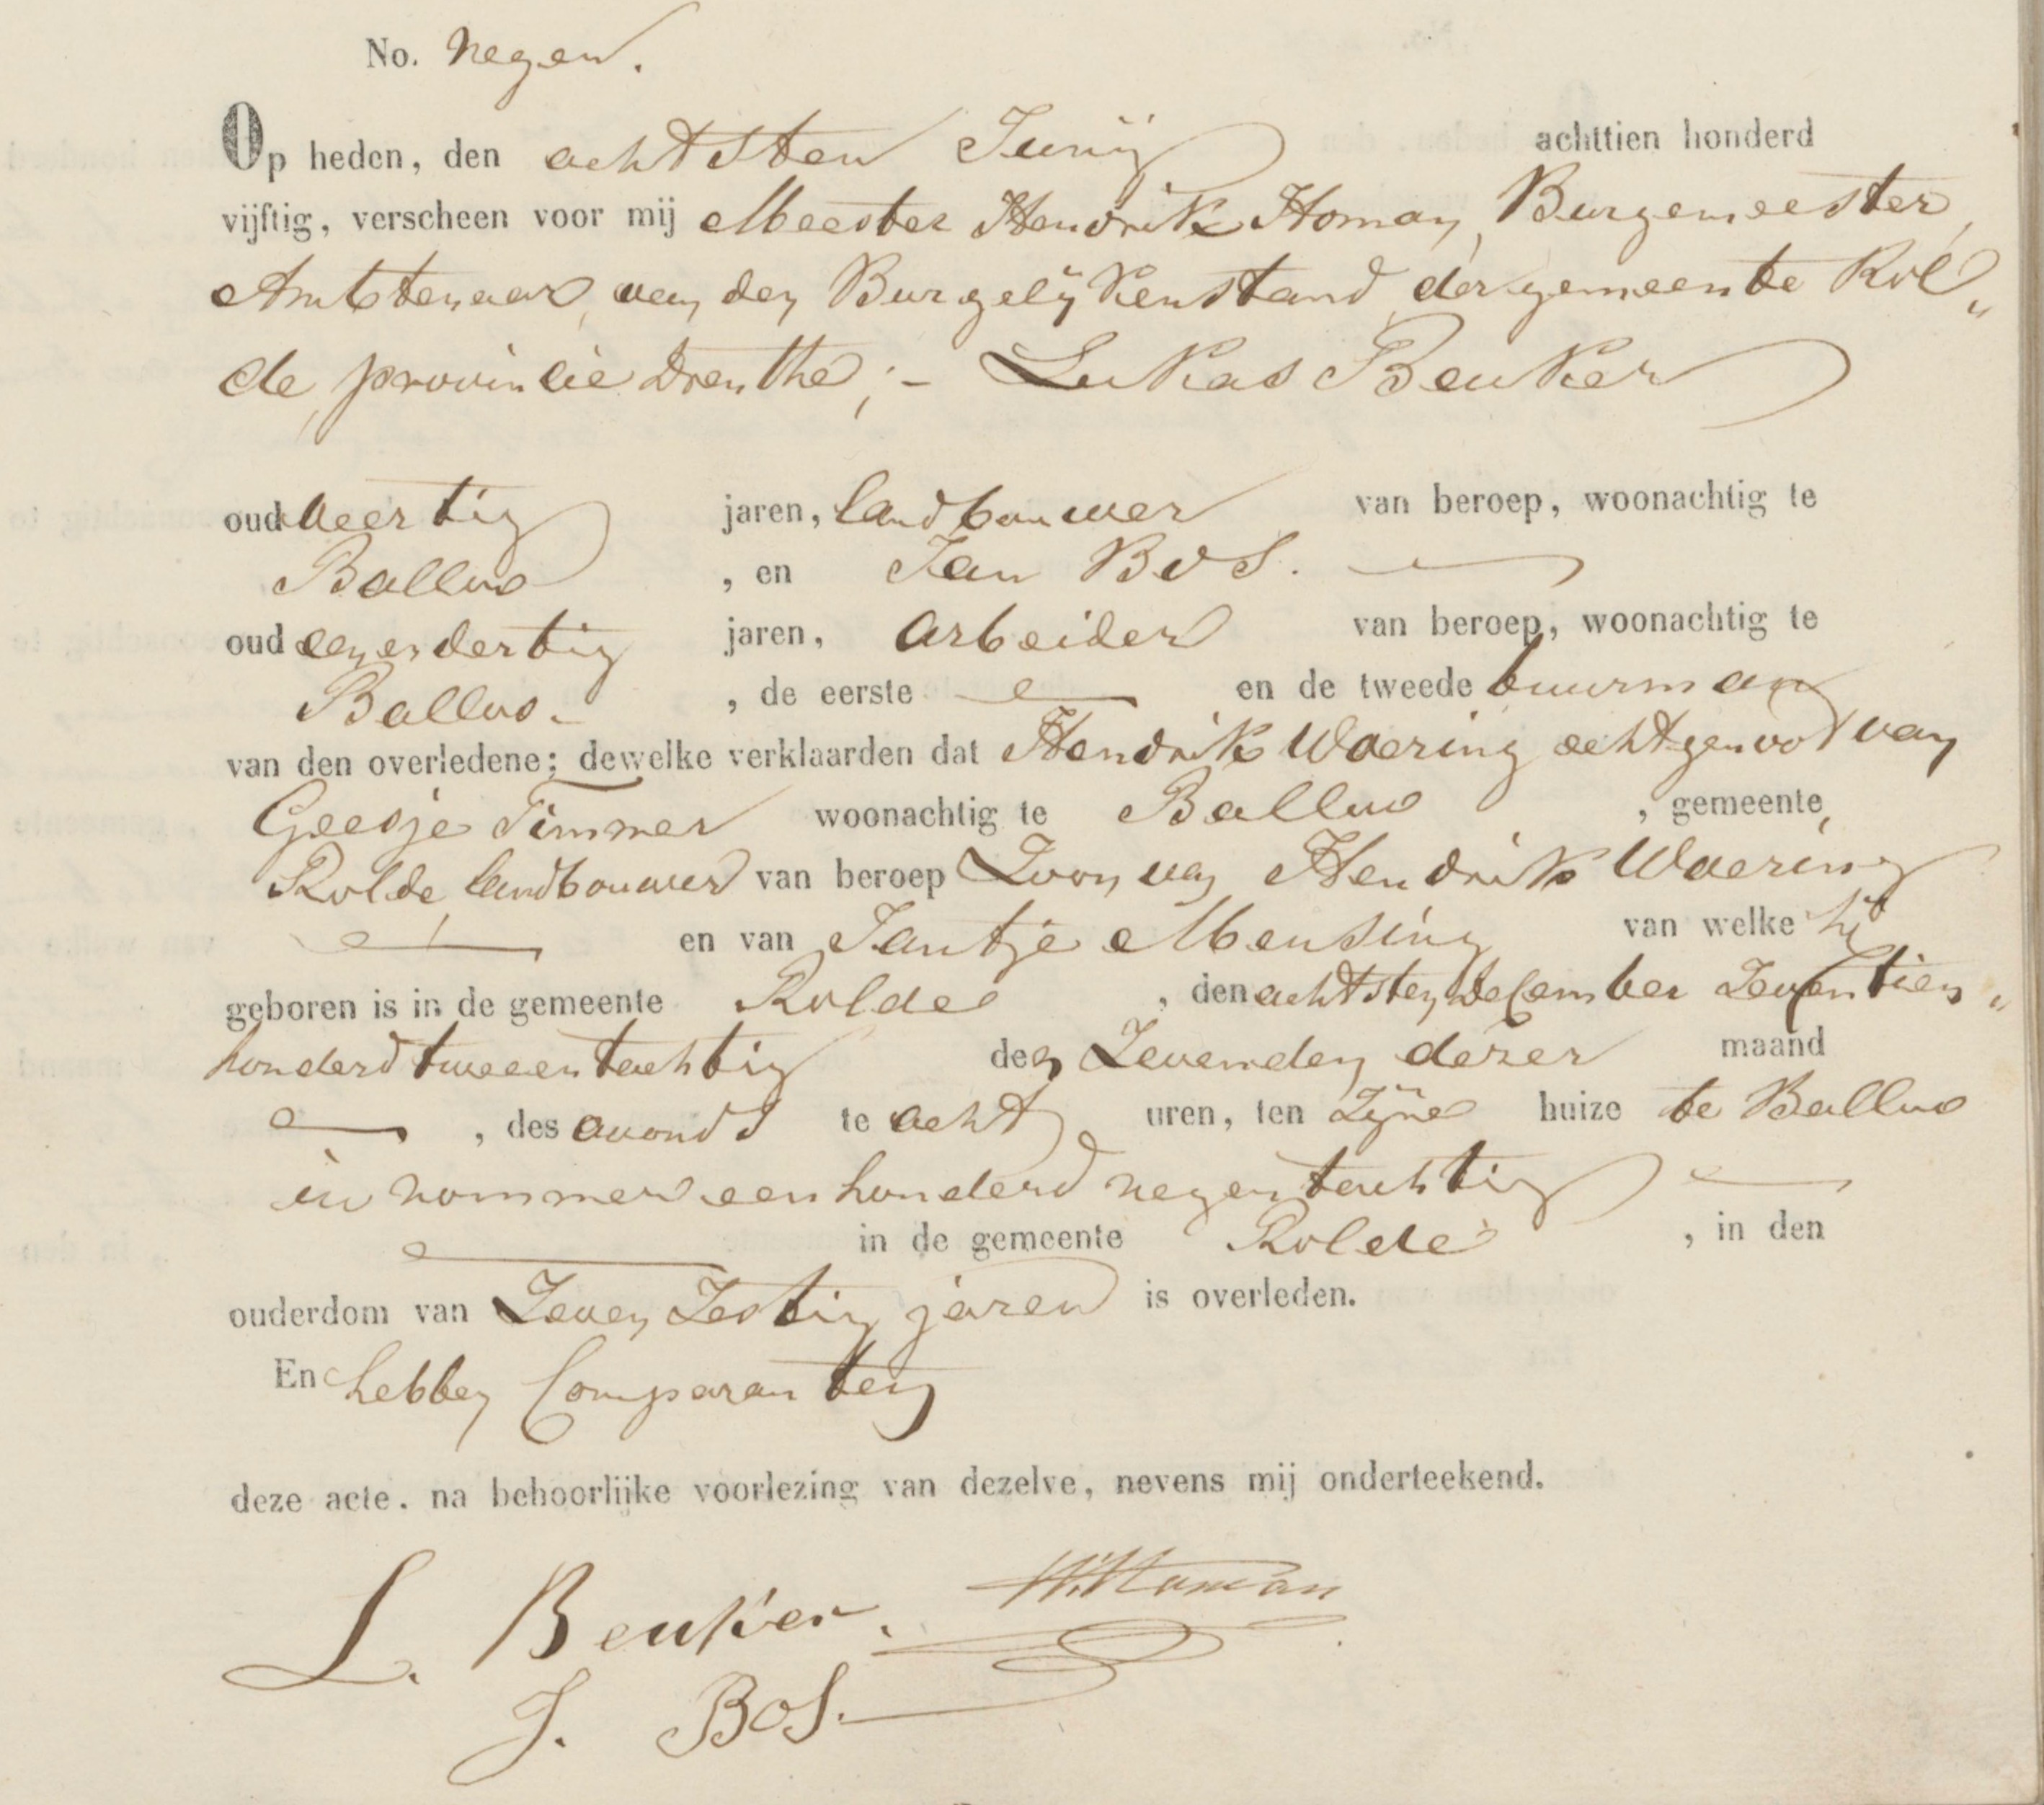 No. negen.
Op heden, den achtsten Junij achttien honderd
vijftig, verscheen voor mij Meester Hendrik Homan, Burgemeester,
Ambtenaar van den Burgelijkenstand der gemeente Rol„
de, provincie Drenthe; – Lukas Beuker
oud veertig jaren, landbouwer van beroep, woonachtig te
Balloo , en Jan Bos. —
oud eenendertig jaren, arbeider van beroep, woonachtig te
Balloo. , de eerste — en de tweede buurman
van den overledene; dewelke verklaarden dat Hendrik Waering echtgenoot van
Geesje Timmer woonachtig te Balloo , gemeente
Rolde, landbouwer van beroep Zoon van Hendrik Waering
— en van Jantje Mensing van welke hij
geboren is in de gemeente Rolde , den achtsten December Zeventien„
honderd tweeentachtig den Zevenden dezer maand
— , des avonds te acht uren, ten Zijne huize te Balloo
in nommer een honderd negentachtig —
— in de gemeente Rolde , in den
ouderdom van Zeven Zestig jaren is overleden.
En hebben Comparanten
deze acte, na behoorlijke voorlezing van dezelve, nevens mij onderteekend.
L. Beuker. HHoman
J. Bos.